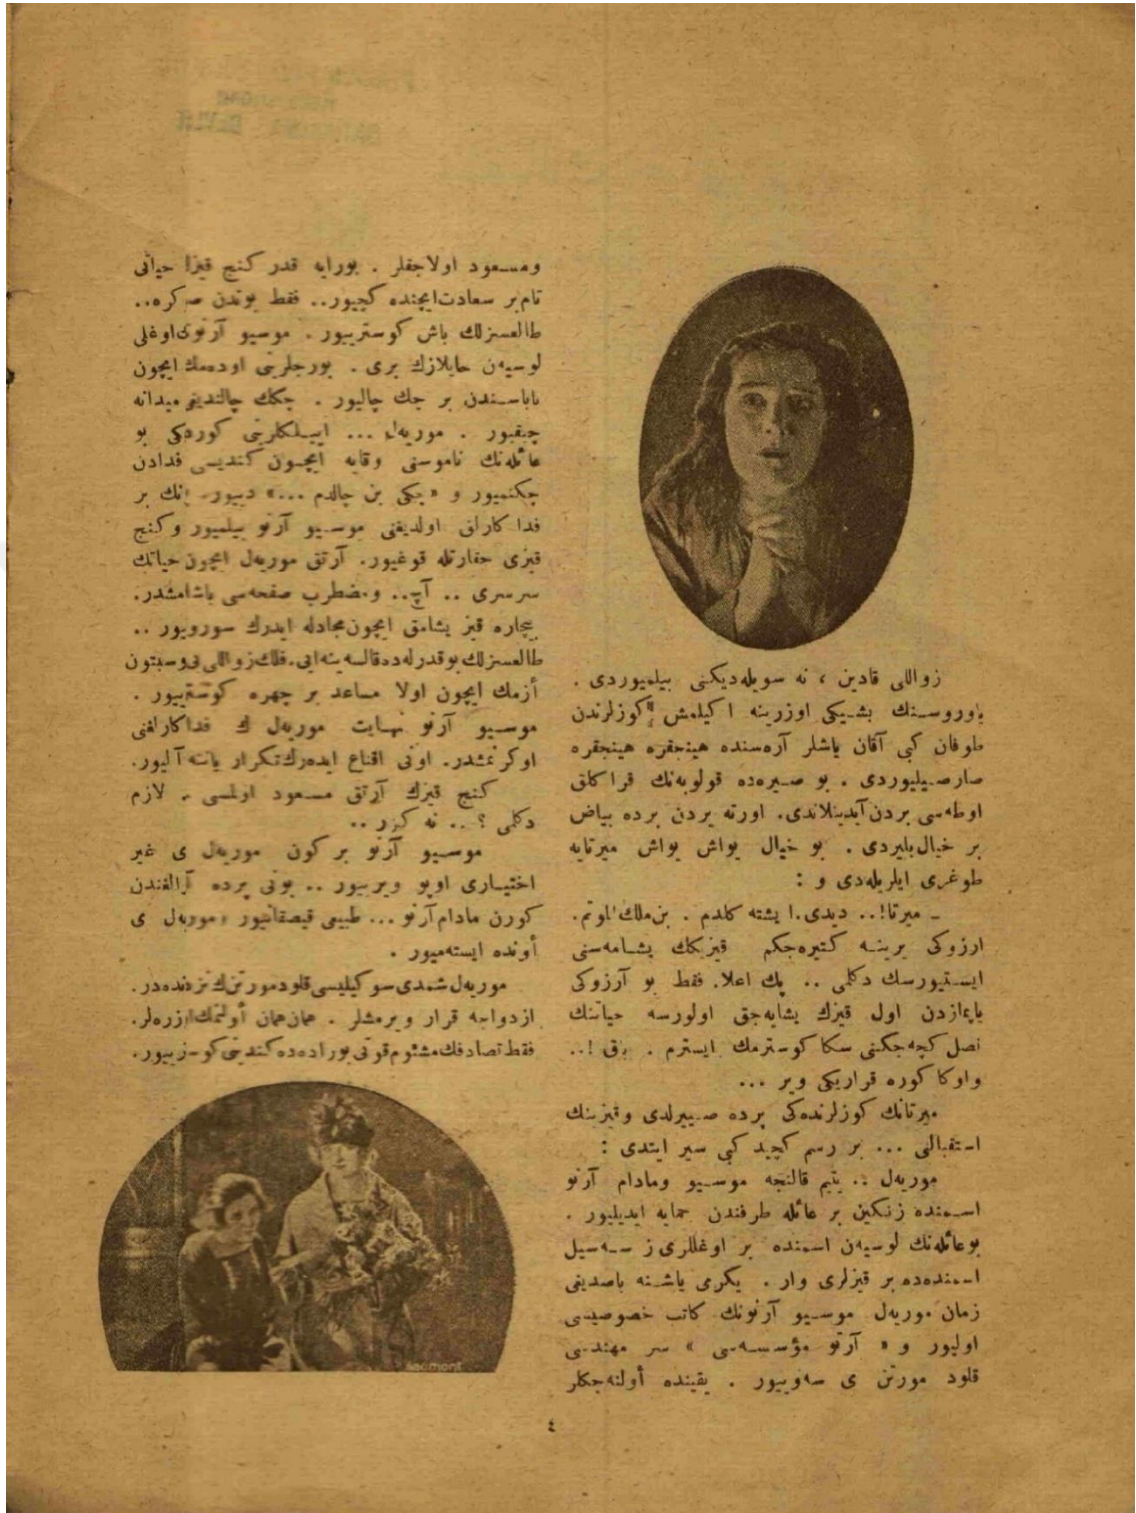 زواللی قادین ، نه سویله‌دیكنی بیلمیوردی .
یاوروسنك بشیكی اوزرینه اكیلمش كوزلرندن
طوفان كبی آقان یاشلر آره‌سنده هینجقره هینجقره
صارصیلیوردی . بو صیره‌ده قولوبه‌نك قراكلق
اوطه‌سی بردن آیدینلاندی. اورته یردن برده بیاض
بر خیال بلیردی . بو خیال یواش یواش میرتایه
طوغری ایلریله‌دی و :
ـ میرتا!.. دیدی. ایشته كلدم . بن ملك الموتم.
آرزوكی یرینه كتیره‌جكم قیزیكك یشامه‌سنی
ایستیورسك دكلمی .. پك اعلا. فقط بو آرزوكی
یاپمازدن اول قیزك یشایه‌جق اولورسه حیاتنك
نصل كچه‌جكنی سكا كوسترمك ایسترم . باق !..
واوكا كوره قراریكی ویر ...
میرتانك كوزلرنده‌كی پرده صییرلدی وقیزینك
استقبالی ... بر رسم كچید كبی سیر ایتدی :
موریه‌ل .. یتیم قالنجه موسیو ومادام آرنو
اسمنده زنكین بر عائله طرفندن حمایه ایدیلیور .
بوعائله‌نك لوسیه‌ن اسمنده بر اوغللری ز سه‌سیل
اسمنده‌ده بر قیزلری وار . یكرمی یاشنه باصدیغی
زمان موریه‌ل موسیو آرنونك كاتب خصوصیسی
اولیور و « آرنو مؤسسه‌سی » سر مهندسی
قلود مورتن ی سه‌وییور . یقینده أولنه‌جكلر
ومسعود اولاجقلر . بورایه قدر كنج قیزك حیاتی
تام بر سعادت ایچنده كچیور.. فقط بوندن صوكره..
طالعسزلك باش كوسترییور . موسیو آرنونك اوغلی
لوسیه‌ن حایلازك بری . بورجلرینی اوده‌مك ایچون
باباسندن بر چك چالیور . چكك چالندیغی میدانه
چیقیور . موریه‌ل ... اییلكلرینی كوردیكی بو
عائله‌نك ناموسنی وقایه ایچون كندیسنی فدادن
چكنمیور و « چكی بن چالدم ...» دییور. بونك بر
فداكارلق اولدیغنی موسیو آرنو بیلمیور وكنج
قیزی حقارتله قوغیور. آرتق موریه‌ل ایچون حیاتك
سرسری .. آچ.. ومضطرب صفحه‌سی باشلامشدر.
بیچاره قیز یشامق ایچون مجادله ایدرك سورویور ..
طالعسزلك بوقدرله‌ده قالسه ینه ایی. فلك زواللی یی بوسبتون
أزمك ایچون اولا مساعد بر چهره كوسترییور .
موسیو آرنو نهایت موریه‌ل ك فداكارلغنی
اوكرنمشدر. اونی اقناع ایده‌رك تكرار یاننه آلیور.
كنج قیزك آرتق مسعود اولمسی . لازم
دكلمی ؟ .. نه كزر ..
موسیو آرنو بر كون موریه‌ل ی غیر
اختیاری اوپو ویرییور .. بونی پرده آرالغندن
كورن مادام آرنو ... طبیعی قیصقانیور موریه‌ل ی
أونده ایسته‌میور .
موریه‌ل شمدی سوكیلیسی قلود مورتن‌ك نزدنده‌در.
ازدواجه قرار ویرمشلر . همان همان أولنمك اوزره‌لر.
فقط تصادفك مشئوم قوتی بوراده‌ده كندینی كوسترییور.
Gaumont
٤